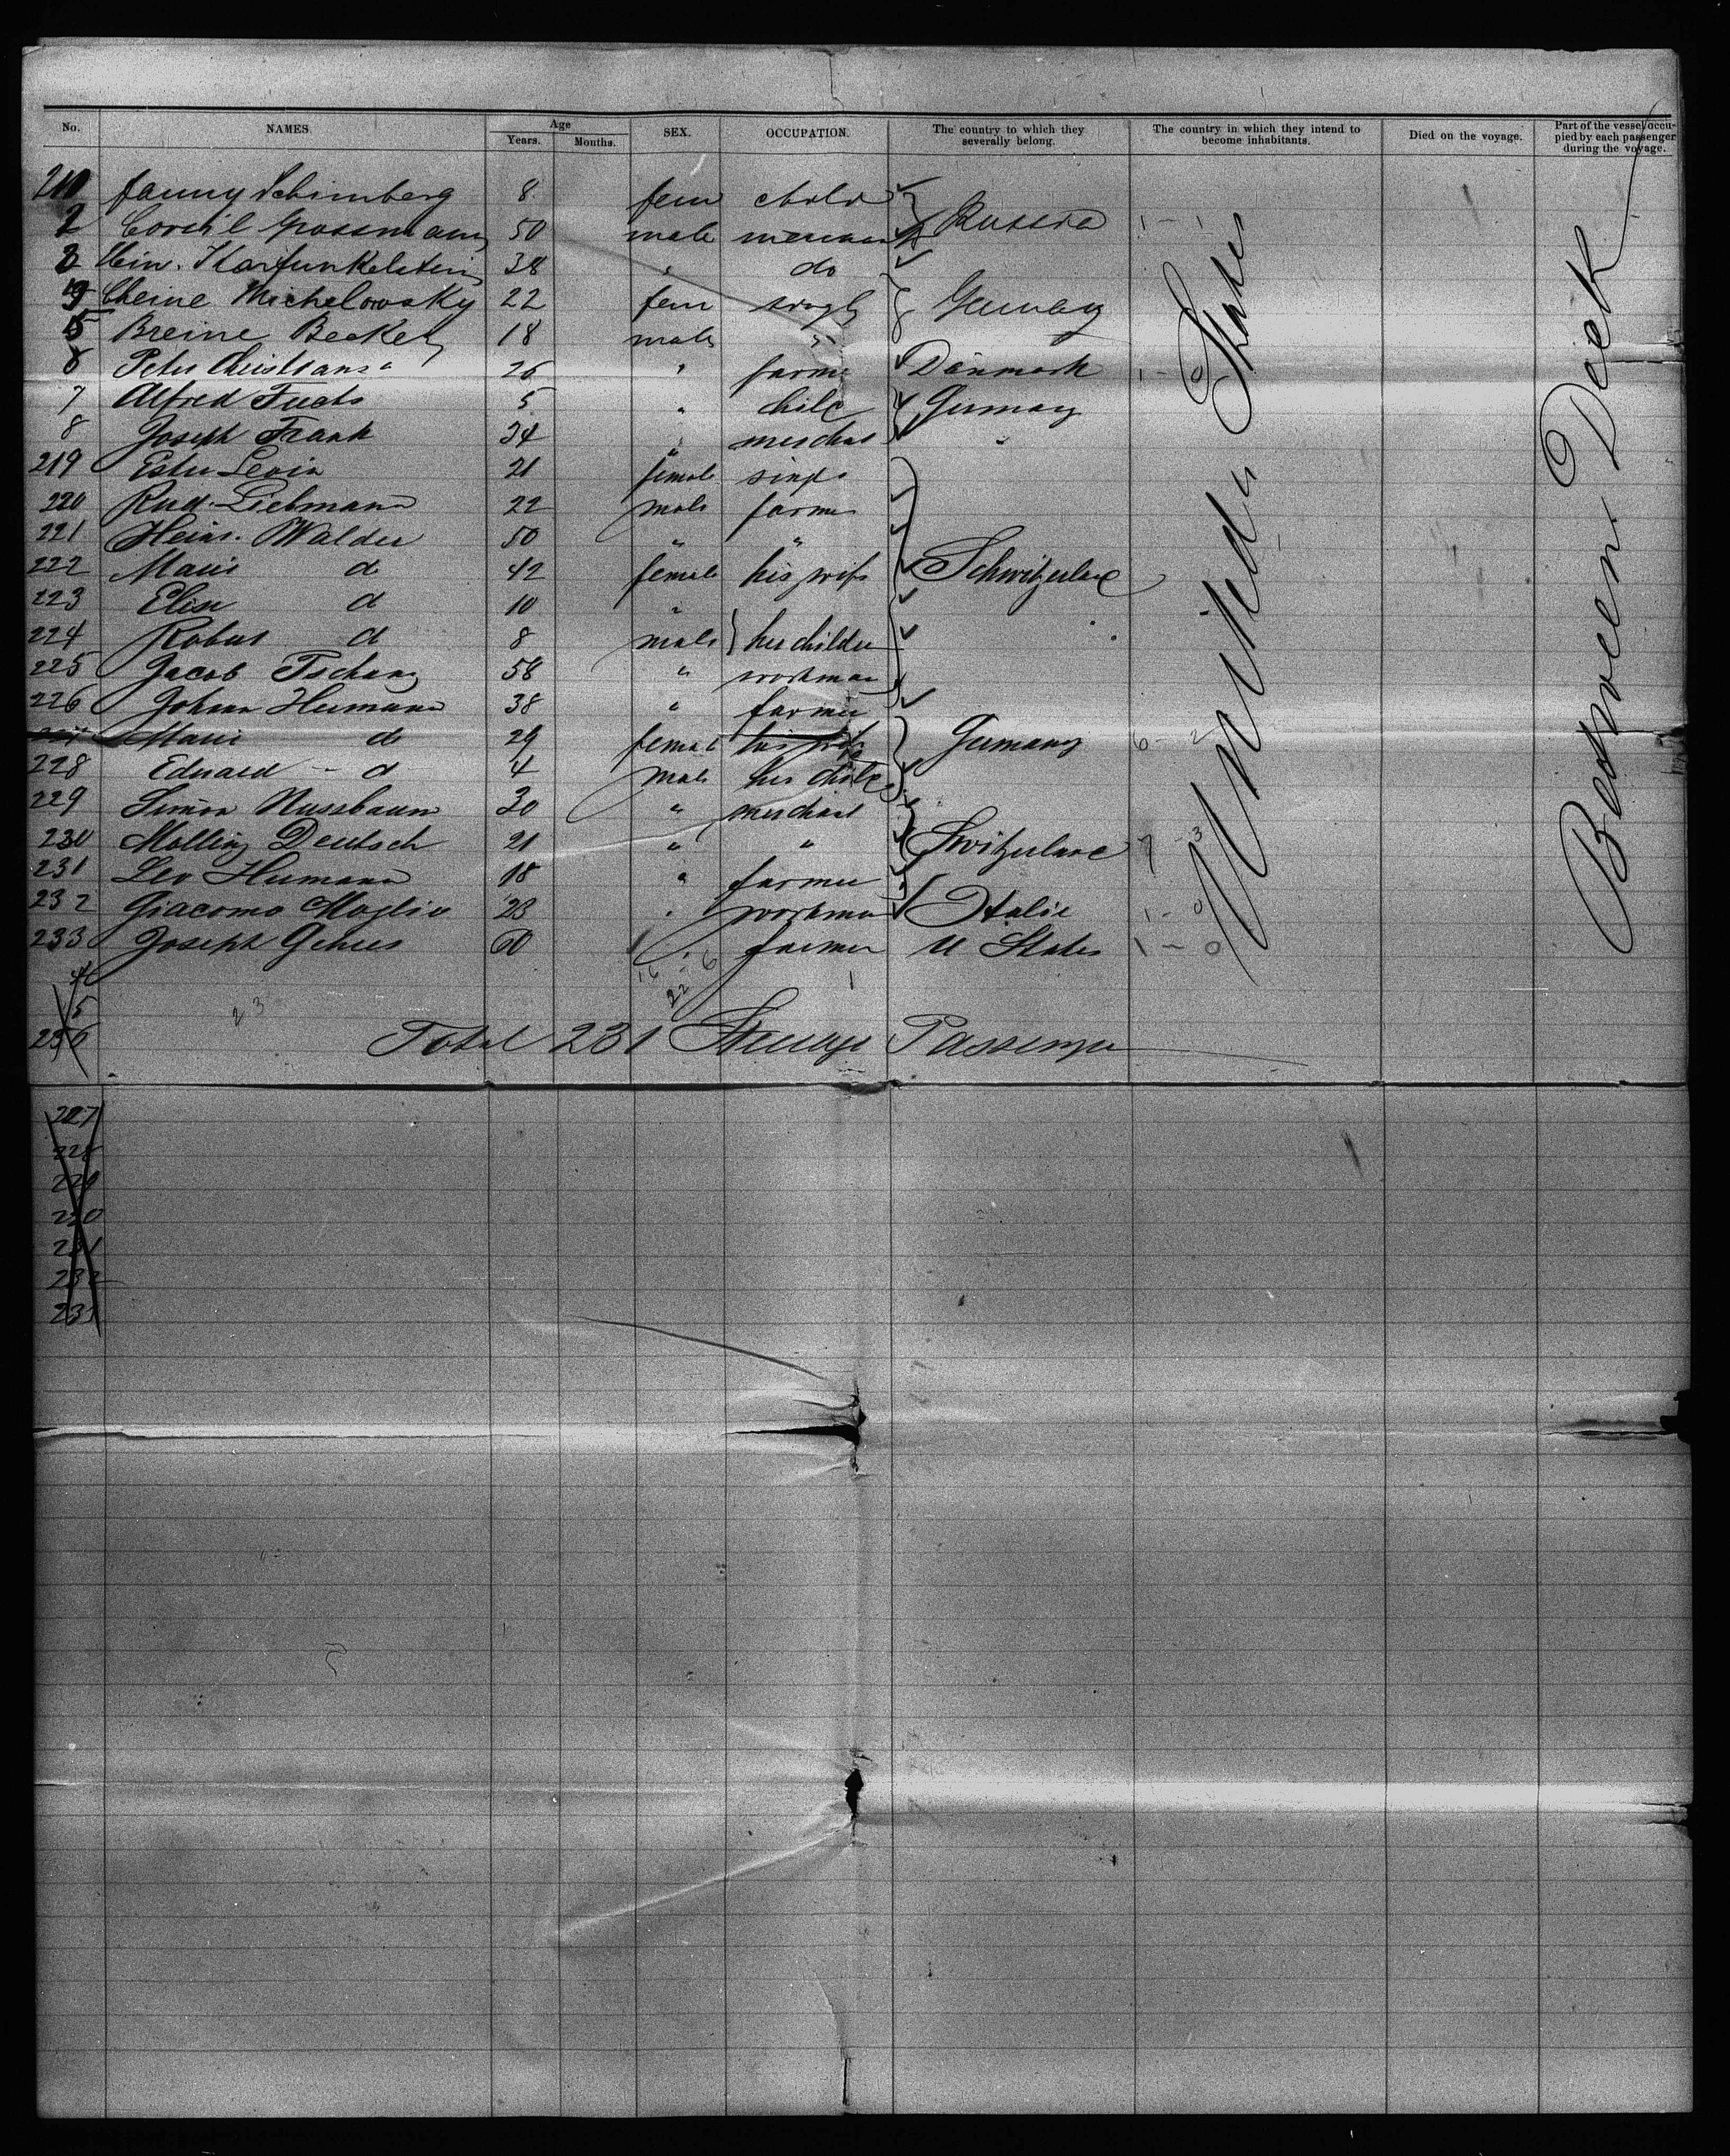 No. NAMES. Age Years. Months. SEX. OCCUPATION. The country to which they severally belong. The country in which they intend to become inhabitants. Died on the voyage. Part of the vessel occupied by each passenger during the voyage.
Fanny Schimberg 8 fem child
2 Grossmann 50 male Russia 1 - 1
Karfunkelstein 38 " do
Michelowsky 22 fem Germany
5 Breine Becker 18 male "
6 Peter 26 " farme Danmark 1 - 0
7 Alfred Fuchs 5 " child Germany
8 Joseph Frank 34 " merchat "
219 Ester Levin 21 female single
220 Rud. Liebmann 22 male farmer
221 Heinr. Walder 50 " "
222 Marie d 42 female his wife Schwitzerland
223 Elise d 10 "
224 Robert d 8 male } her children
225 Jacob Tschanz 58 " workman
226 Johann Hermann 38 " farmer
Marie do 29 female his wife Germany 6 - 2
228 Eduard - d 4 male her child
229 Simon Nussbaum 30 " merchant
230 Deutsch 21 " " Switzerland 7 - 3
231 Leo Hermann 18 " farmer
232 Giacomo Moglia 23 " workman Italie 1 - 0
233 Joseph 60 farmer U States 1 - 0
5
23
236 Total 231 Steerage Passenger
United States
Between Deck
227
228
229
230
231
232
233